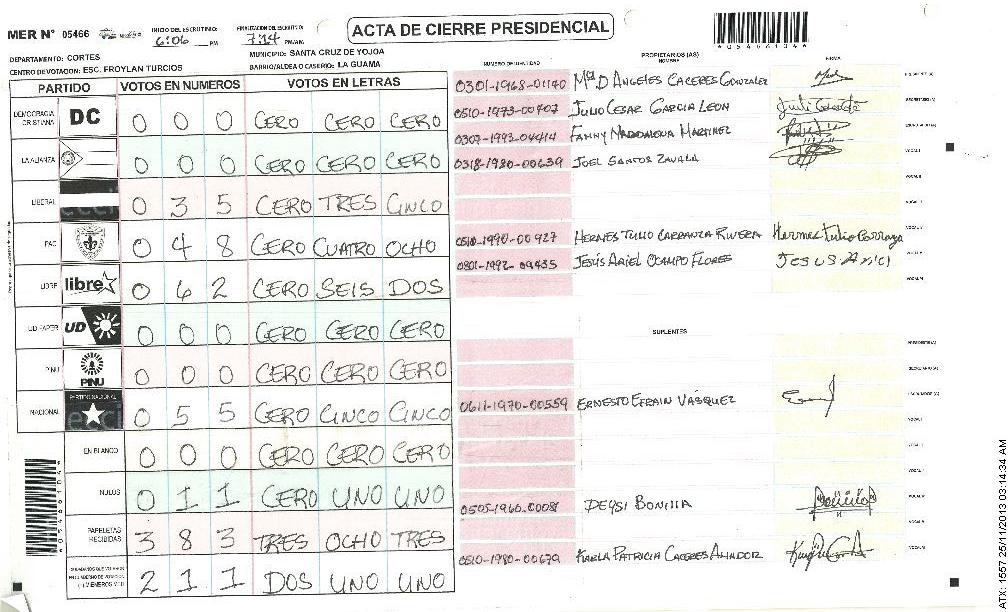 MER N° 05466
INICIO DEL ESCRUTINIO: 6:06 PM
FINALIZACION DEL ESCRUTINIO: 7:14 PM/AM
ACTA DE CIERRE PRESIDENCIAL
DEPARTAMENTO: CORTES
MUNICIPIO: SANTA CRUZ DE YOJOA
CENTRO DE VOTACION: ESC. FROYLAN TURCIOS
BARRIO/ALDEA O CASERIO: LA GUAMA
PARTIDO VOTOS EN NUMEROS VOTOS EN LETRAS
DEMOCRACIA CRISTIANA DC 0 0 0 CERO CERO CERO
LA ALIANZA 0 0 0 CERO CERO CERO
LIBERAL 0 3 5 CERO TRES CINCO
PAC 0 4 8 CERO CUATRO OCHO
LIBRE libre 0 6 2 CERO SEIS DOS
UD FAPER UD 0 0 0 CERO CERO CERO
PINU PINU 0 0 0 CERO CERO CERO
NACIONAL PARTIDO NACIONAL 0 5 5 CERO CINCO CINCO
EN BLANCO 0 0 0 CERO CERO CERO
NULOS 0 1 1 CERO UNO UNO
PAPELETAS RECIBIDAS 3 8 3 TRES OCHO TRES
2 1 1 DOS UNO UNO
NUMERO DE IDENTIDAD PROPIETARIOS (AS) NOMBRE FIRMA
0301-1968-01140 Mª D ANGELES CACERES GONZALEZ
0510-1973-00407 JULIO CESAR GARCIA LEON
0307-1993-04414 FANNY MARTINEZ
0318-1980-00639 JOEL SANTOS ZAVALA
0510-1990-00927 HERMES TULIO CARRANZA RIVERA Hermes Tulio Carranza
0801-1992-09435 JESÚS ARIEL OCAMPO FLORES Jesus Ariel
SUPLENTES
0611-1970-00559 ERNESTO EFRAIN VÁSQUEZ
0505-1960-00081 DEYSI BONILLA
0510-1980-00679 KARLA PATRICIA CACERES AMADOR
ATX: 1557 25/11/2013 03:14:34 AM